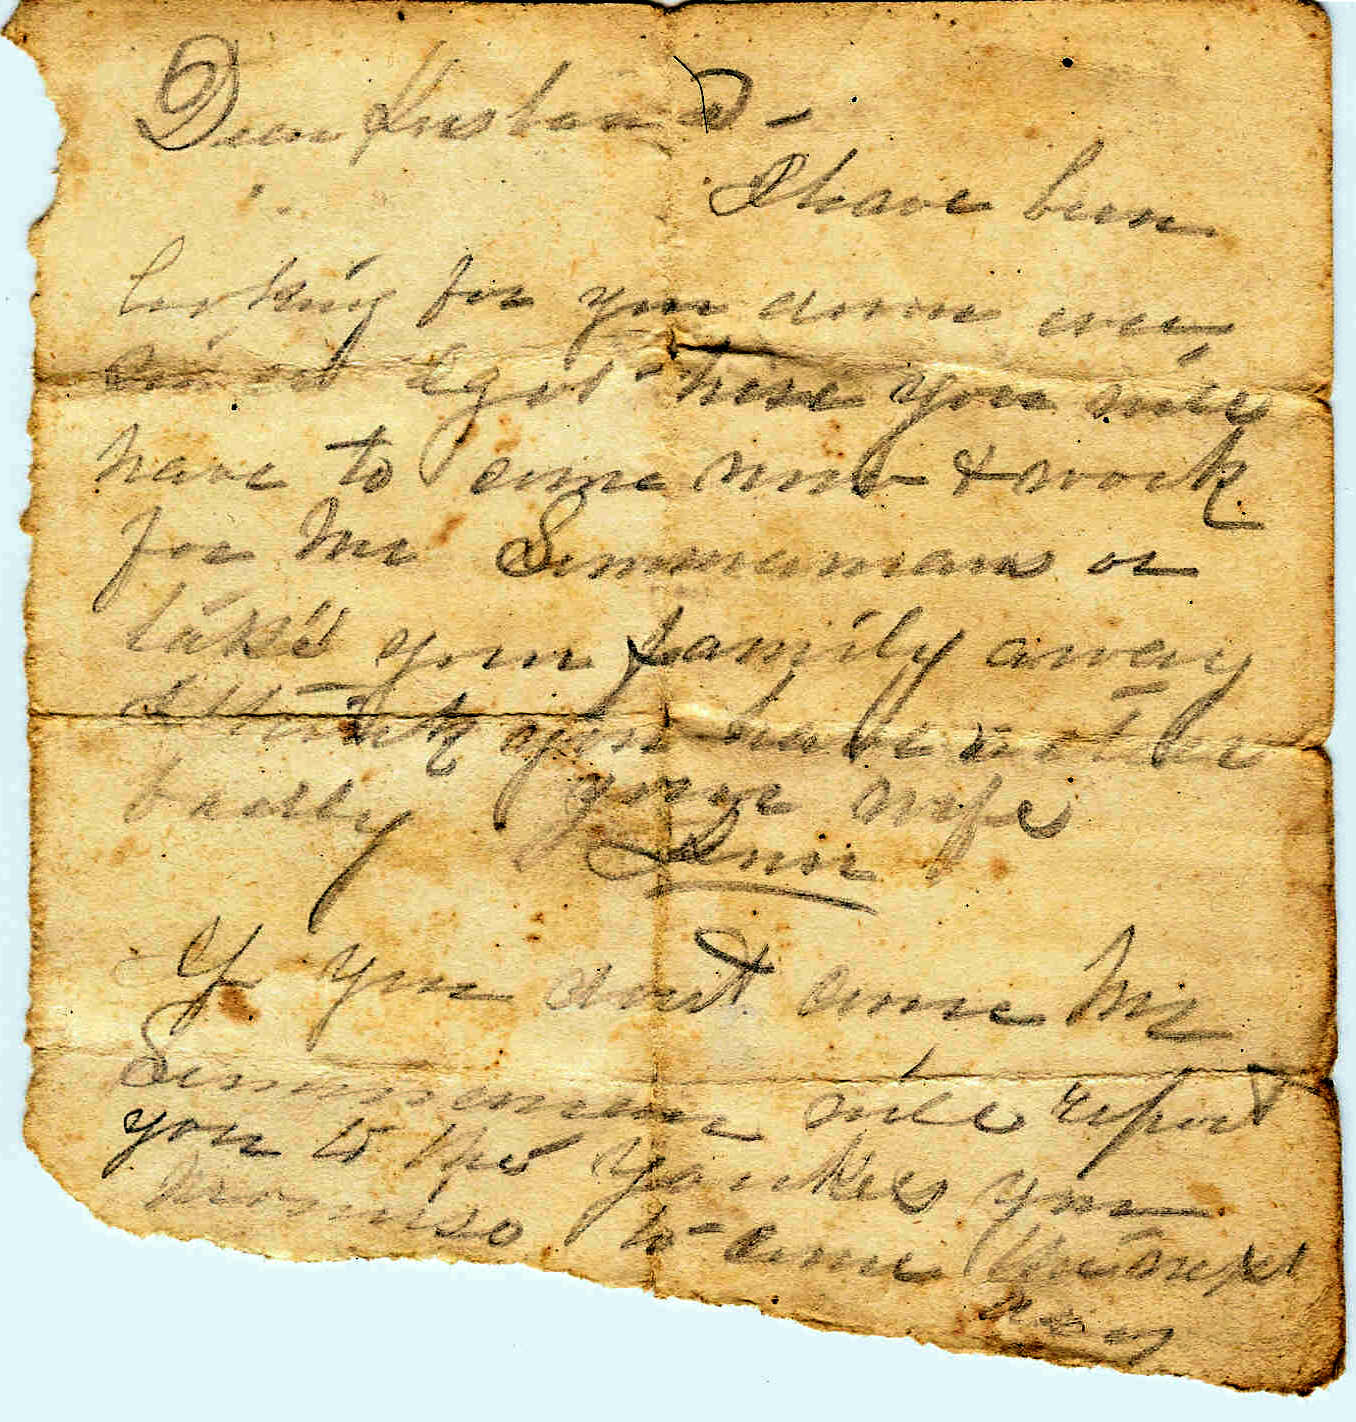 Dear Husband -
I have been
looking for you down ever
since I got here you will
have to come now & work
for Mr Simmemans or
take your family away
I think you have acted
badly your wife
Ann
If you dont come Mr
Simmeman will report
you to the Yankees you
promise to come the next
day